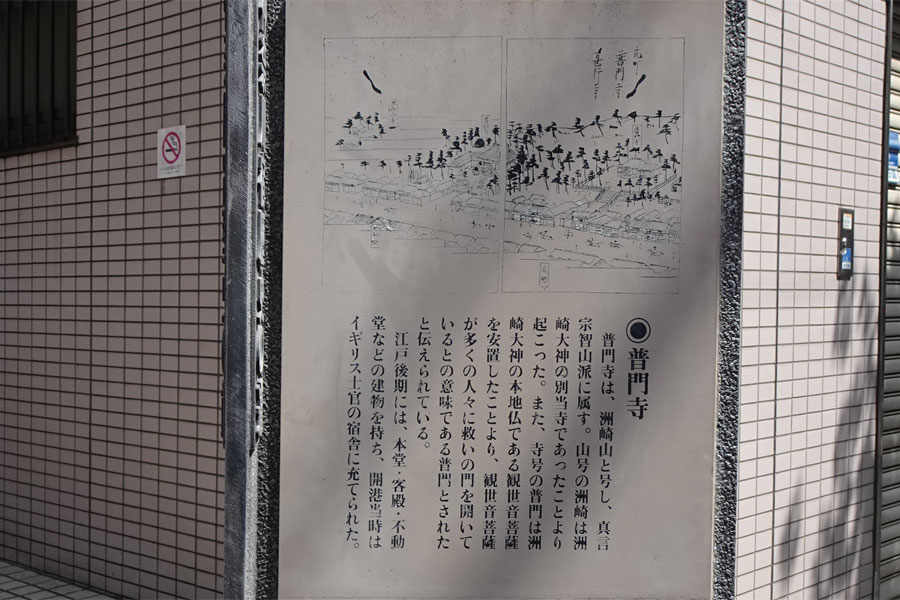 元町
普門寺
甚行寺
元町
◉普門寺
普門寺は、洲崎山と号し、真言
宗智山派に属す。山号の洲崎は洲
崎大神の別当寺であったことより
起こった。また、寺号の普門は洲
崎大神の本地仏である観世音菩薩
を安置したことより、観世音菩薩
が多くの人々に救いの門を開いて
いるとの意味である普門とされた
と伝えられている。
江戸後期には、本堂・客殿・不動
堂などの建物を持ち、開港当時は
イギリス士官の宿舎に充てられた。